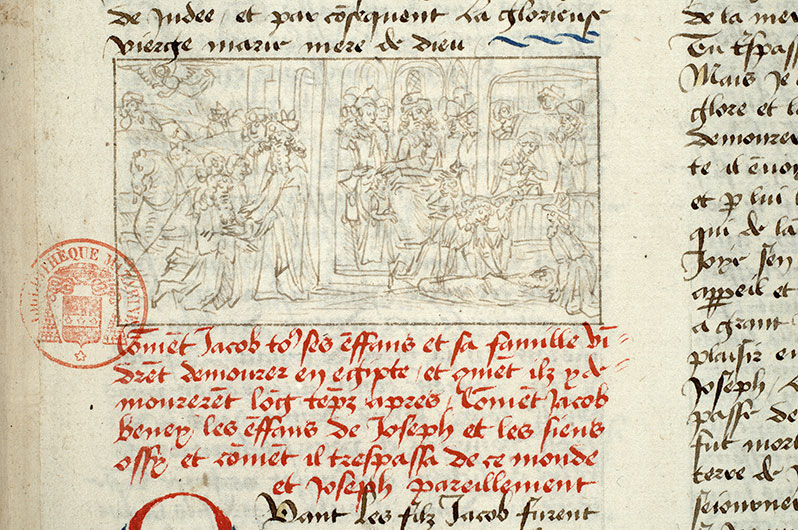 de judee, et par cõsequent la glorieuse
vierge marie mere de dieu
Cõment Jacob toꝰ ses ẽffans et sa famille vi-
drẽt demourer en egipte, et cõmẽt ilz y de
mourerẽt lõg tẽpz apres, Cõment Jacob
beney les ẽffans de Joseph et les siens
ossy et cõment il trespassa de ce monde
et Joseph pareillement
Quant les filz Jacob furent
de la mer
Mais je
glore et l
demoure
et p lui
qui de la
Joye sen
appeil et
a grant
plaisir e
Joseph,
passe de
fut mort
terre de
seiourne
BIBLIOTHEQUE MAZARINE